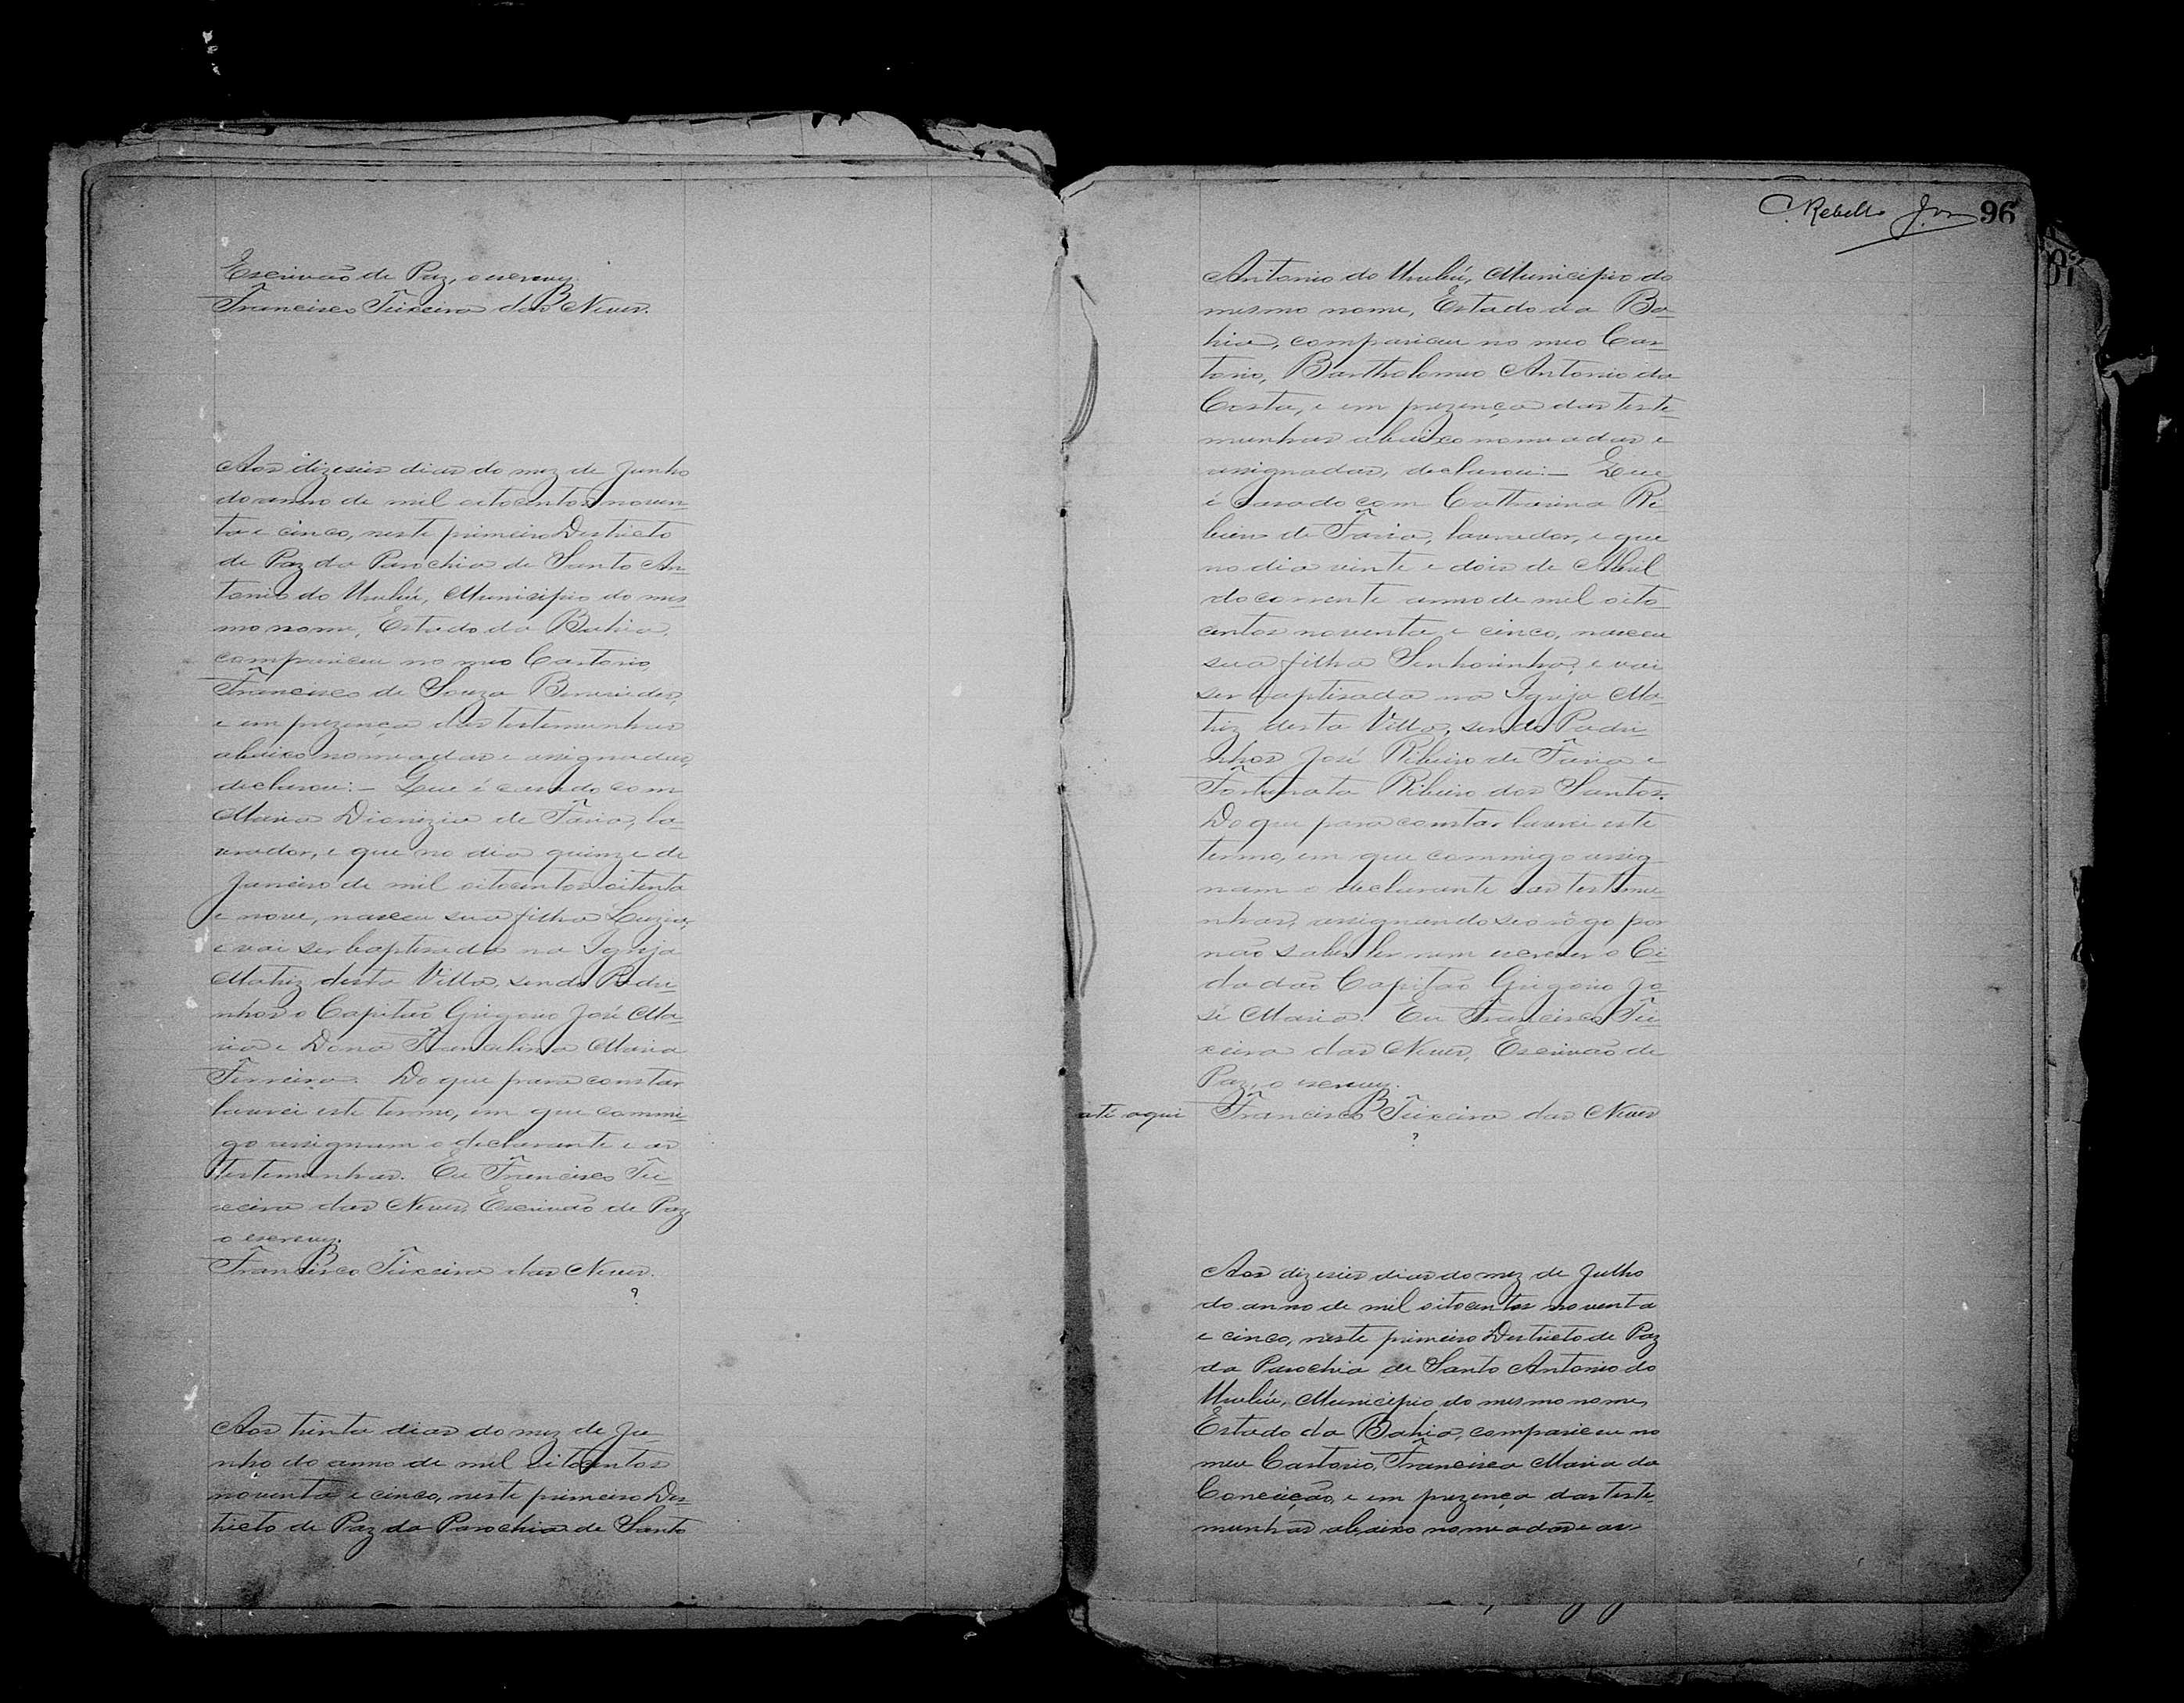 Escrivão de Paz, o escrevy.
Francisco Teixeira das Neves.
Aos dizeseis dias do mez de Junho
do anno de mil oitocentos noven-
ta e cinco, neste primeiro Destricto
de Paz da Parochia de Santo An-
tonio do Urubú, Municipio do mes-
mo nome, Estado da Bahia,
compariceu no meo Cartorio,
Francisco de Souza Benevides,
e em prezença das testemunhas
abaixo nomeadas e assignadas,
declarou:- Que é casado com
Maria Dionizia de Faria, la-
vrador, e que no dia quinze de
Janeiro de mil oitocentos oitenta
e nove, nasceu sua filha Luzia,
e vai ser baptisada na Igreja
Matriz desta Villa, sendo Padri-
nhos o Capitão Grigorio José Ma-
ria e Dona Maria
Ferreira. Do que para constar
lavrei este termo, em que commi-
go assignam o declarante e as
testemunhas. Eu Francisco Tei-
xeira das Neves, Escrivão de Paz
o escrevy.
Francisco Teixeira das Neves.
?
Aos trinta dias do mez de Ju-
nho do anno de mil oitocentos
noventa e cinco, neste primeiro Des-
tricto de Paz da Parochia de Santo
Rebello Jor 96
Antonio do Urubú, Municipio do
mesmo nome, Estado da Ba-
hia, compariceu no meo Car-
torio, Bartholomeo Antonio da
Costa, e em prezença das teste-
munhas abaixo nomeadas e
assignadas, declarou:- Que
é casado com Catharina Ri-
beiro de Faria, lavrador, e que
no dia vinte e dois de Abril
do corrente anno de mil oito-
centos noventa e cinco, nasceu
sua filha Senhorinha, e vai
ser baptisada na Igreja Ma-
triz desta Villa, sendo Padri-
nhos José Ribeiro de Faria e
Fortunata Ribeiro dos Santos.
Do que para constar lavrei este
termo, em que commigo assig-
nam o declarante e as testemu-
nhas, assignando seo rôgo por
não saber ler nem escrever o Ci-
dadão Capitão Grigorio Jo-
sé Maria. Eu Francisco Tei-
xeira das Neves, Escrivão de
Paz, o escrevy.
até aqui Francisco Teixeira das Neves
?
Aos dizeseis dias do mez de Julho
do anno de mil oitocentos noventa
e cinco, neste primeiro Destricto de Paz
da Parochia de Santo Antonio do
Urubú, Municipio do mesmo nome,
Estado da Bahia, compariceu no
meu Cartorio, Francisca Maria da
Conceição, e em prezença das teste-
munhas abaixo nomeadas e as-